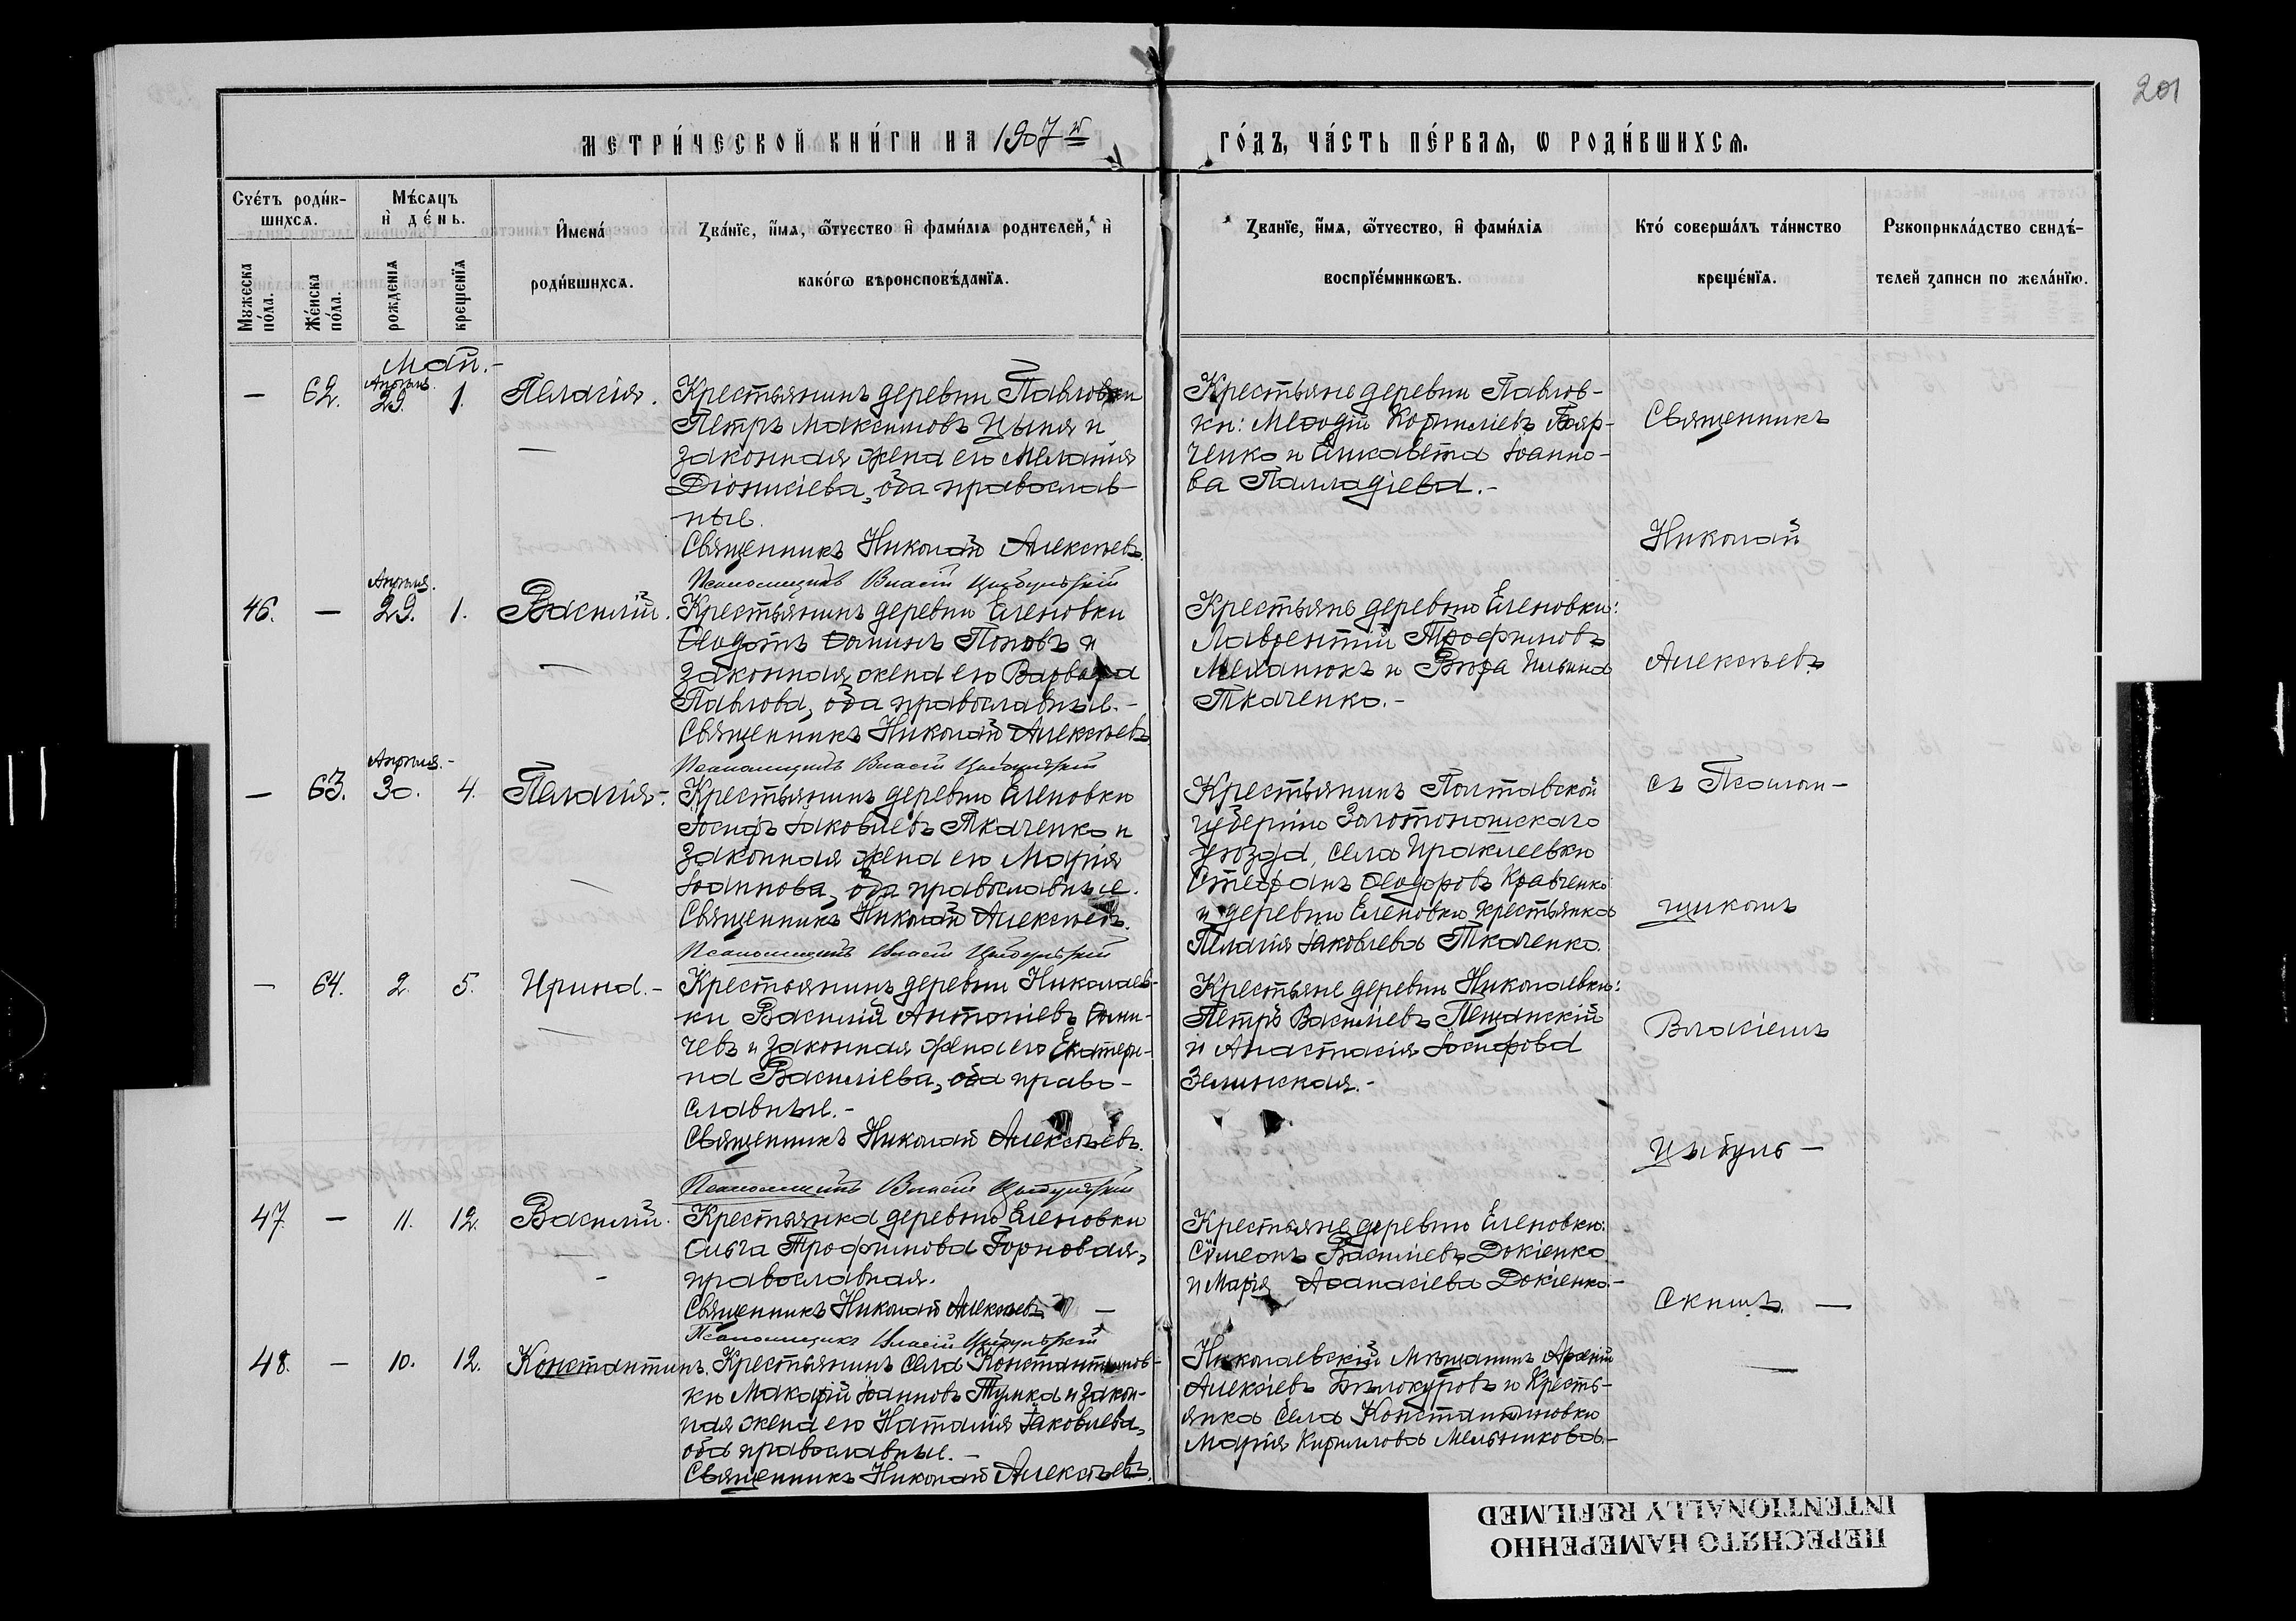 201
МЕТРИ́ЧЕСКОЙ КНИ́ГИ НА 1907й
ГО́ДЪ, ЧА́СТЬ ПЕ́РВАѦ, Ѡ РОДИ́ВШИХСѦ.
Сче́тъ роди́в-
шихсѧ.
Мѣ́сѧцъ
и҆ де́нь.
Мꙋжеска
по́ла.
Же́нска
по́ла.
рожденїѧ
крещенїѧ
И҆мена́
роди́вшихсѧ.
Зва́нїе, и҆́мѧ, ѻ҆́тчество и҆ фами́лїѧ родителей, и҆
како́гѡ вѣроисповѣ́данїѧ.
Зва́нїе, и҆́мѧ, ѻ҆́тчество, и҆ фами́лїѧ
воспрїе́мникѡвъ.
Кто́ соверша́лъ та́инство
креще́нїѧ.
Рꙋкоприкла́дство свидѣ́-
телей записи по жела́нїю.
Май.-
— 62. Апрѣля. 29. 1. Пелагія.
Крестьянинъ деревни Павловки
Петръ Максимовъ Цыня и
законная жена его Меланія
Діонисіева, оба православ-
ные.
Священникъ Николай Алексѣевъ.
Псаломщикъ Власій Цыбульскій
Крестьяне деревни Павлов-
ки: Меѳодій Корниліевъ Бояр-
ченко и Елисавета Іоанно-
ва Палладіева.-
46. — Апрѣля. 29. 1. Василій.
Крестьянинъ деревни Еленовки
Ѳеодотъ Ѳоминъ Поповъ и
законная жена его Варвара
Павлова, оба православные.-
Священникъ Николай Алексѣевъ.
Псаломщикъ Власій Цыбульскій
Крестьяне деревни Еленовки:
Лаврентій Трофимовъ
Меланюкъ и Вѣра Ильина
Ткаченко.-
— 63. Апрѣля.- 30. 4. Пелагія.-
Крестьянинъ деревни Еленовки
Іосифъ Іаковлевъ Ткаченко и
законная жена его Марія
Іоаннова, оба православные.
Священникъ Николай Алексѣевъ.
Псаломщикъ Власій Цыбульскій
Крестьянинъ Полтавской
губерніи Золотоношскаго
уѣзда, села Ираклеевки
Стефанъ Ѳеодоровъ Кравченко
и деревни Еленовки крестьянка
Пелагія Іаковлева Ткаченко.
— 64. 2. 5. Ирина.-
Крестьянинъ деревни Николаев-
ки Василій Антоніевъ Ѳоми-
чевъ и законная жена его Екатери-
на Василіева, оба право-
славные.-
Священникъ Николай Алексѣевъ.
Псаломщикъ Власій Цыбульскій
Крестьяне деревни Николаевки:
Петръ Василіевъ Пещанскій
и Анастасія Іосифова
Зелинская.-
47. — 11. 12. Василій.
Крестьянка деревни Еленовки
Ольга Трофимова Горновая,
православная.
Священникъ Николай Алексѣевъ —
Псаломщикъ Власій Цыбульскій
Крестьяне деревни Еленовки:
Сѵмеонъ Василіевъ Докіенко
и Марія Аѳанасіева Докіенко.-
48. — 10. 12. Константинъ.
Крестьянинъ села Константинов-
ки Макарій Іоанновъ Тупка и закон-
ная жена его Наталія Іаковлева,
оба православные.-
Священникъ Николай Алексѣевъ.
Николаевскій мѣщанинъ
Алексіевъ Бѣлокуровъ и кресть-
янка села Константиновки
Марія Кириллова Мельникова.-
Священникъ
Николай
Алексѣевъ
съ Псалом-
щикомъ
Власіемъ
Цыбуль-
скимъ. —
ПЕРЕСНЯТО НАМЕРЕННО
INTENTIONALLY REFILMED